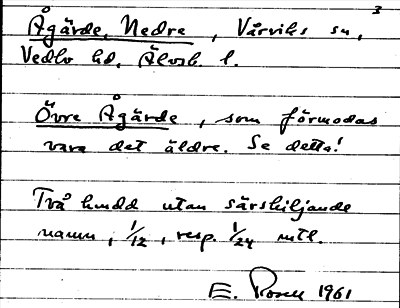 3
Ågärde, Nedre, Vårviks sn,
Vedbo hd, Älvsb. l.
Övre Ågärde, som förmodas
vara det äldre. Se detta!
Två hmdd utan särskiljande
namn, 1/12, resp. 1/24 mtl.
E. Rosell 1961